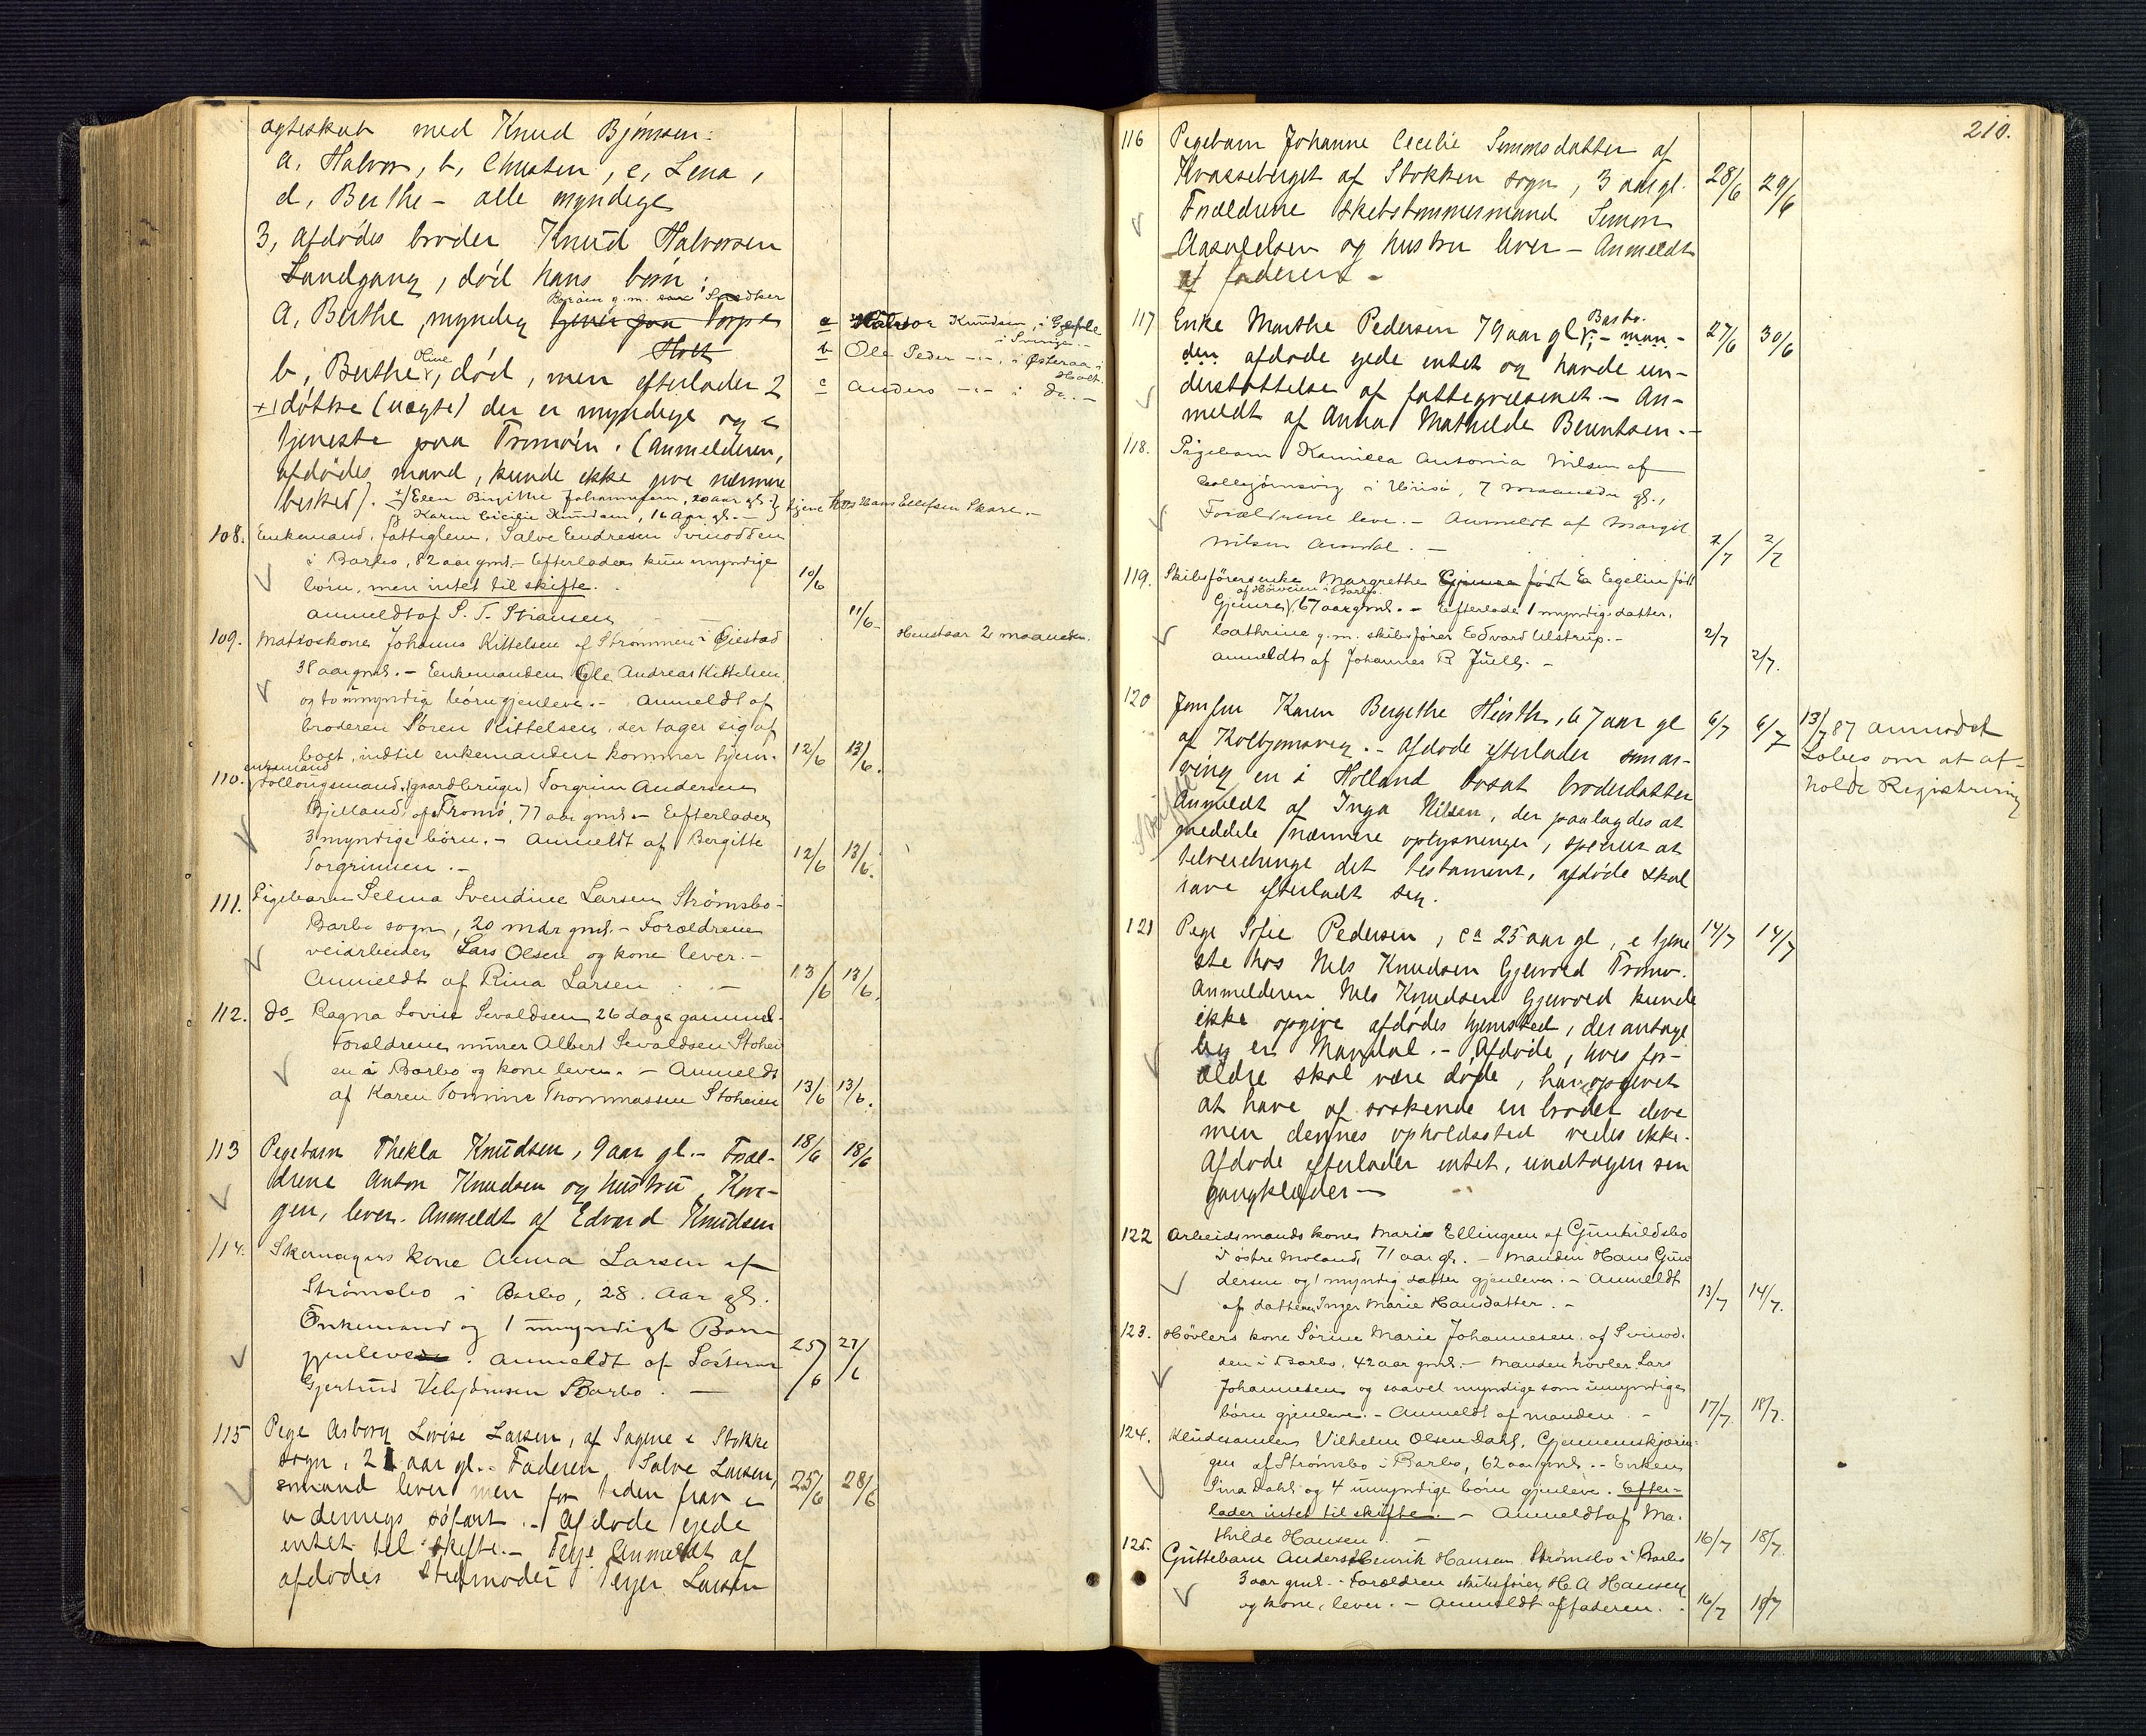 ægteskab med Knud Bjørnsen:
a, Halvor, b, Christen, c, Lena,
d, Berthe – alle myndige
3, Afdødes broder Knud Halvorsen
Landgang, død hans børn:
Boröen g.m.
a, Berthe, myndig tjener paa Torp i
Holt
b, Berthe Oline, død, men efterlader 2
+) døttre (uægte) der er myndige og i
tjeneste paa Tromøen. (Anmelderen,
afdødes mand, kunde ikke give nærmere
besked). +) Elen Birgithe Johannesen, 20 aar gl. } tjene hos Hans Ellefsen Skare. –
og Karen Cicilie Knudsen, 16 Aar gl. –
a Halvor Knudsen, i Gefle
i Sverige. –
b Ole Peder –"– i Østeraa i
Holt.
c Anders –"– i do. –
108. Enkemand, fattiglem, Salve Endresen Svinodden
i Barbo, 82 aar gml. – Efterlader kun myndige
børn, men intet til skifte. 10/6
Anmeldt af S. T. Stiansen 11/6
109. Matroskone Johanne Kittelsen af Strømmen i Øiestad Henstaar 2 maaneder.
38 aar gml. – Enkemanden Ole Andreas Kittelsen
og to umyndig børn gjenleve. – Anmeldt af
broderen Søren Kittelsen, der tager sig af
boet, indtil enkemanden kommer hjem. 12/6 13/6.
enkemand
110. Follougsmand, (gaardbruger) Torgrim Andersen
Bjelland af Tromø, 77 aar gml. – Efterlader
3 myndige børn. – Anmeldt af Bergitte
Torgrimsen. – 12/6 13/6.
111. Pigebarn Selma Svendine Larsen Strømsbo
Barbo sogn, 20 mdr gml. – Forældrene
veiarbeider Lars Olsen og kone lever. –
Anmeldt af Rina Larsen – 13/6 13/6.
112. do Ragna Lovise Sevaldsen 26 dage gammel.
Forældrene murer Albert Sevaldsen Stohei
en i Barbo og kone lever. – Anmeldt
af Karen Tomine Thommassen Stoheien 13/6 13/6.
113 Pigebarn Thekla Knudsen, 9 aar gl. – Foræl- 18/6 18/6
drene Anton Knudsen og hustru, Kro-
gen, lever. Anmeldt af Edvard Knudsen
114. Skomagers kone Anna Larsen af
Strømsbo i Barbo, 28 Aar gl.
Enkemand og 1 umyndigt Barn
gjenlever. Anmeldt af Søsteren 25/6 27/6
Gjertrud Barbo. –
115 Pige Asborg Lovise Larsen, af Sagene i Stokke
sogn, 21 aar gl. – Faderen, Salve Larsen,
sømand lever men for tiden fravæ- 25/6 28/6
udenrigs søfart. – Afdøde eiede
intet til skifte. – Anmeldt af
afdødes stedmoder Larsen
210.
116 Pigebarn Johanne Cecilie Simonsdatter af
Kvasseberget af Stokken sogn, 3 aar gl. 28/6 29/6
Forældrene skibstømmermand Simon
Aasuldsen og hustru lever – Anmeldt
af faderen –
Barbo.
117 Enke Marthe Pedersen 79 aar gl; – man- 27/6 30/6
den afdøde eiede intet og havde un-
derstøttelse af fattigvæsenet. – An-
meldt af Anna Mathilde Berentsen. –
118. Pigebarn Kamilla Antonia Nilsen af
Kolbjørnsvig i Hisø, 7 Maaneder gl.,
Forældrene leve. – Anmeldt af Margit
Nilsen Arendal. – 2/7 2/7
119. Skibsførerenke Margrethe Gjemre født Ea Egelin født
af Høiveien i Barbo.
Gjemre, 67 aar gml. – Efterlade 1 myndig datter,
Cathrine g.m. skibsfører Edvard Ulstrup. – 2/7
Anmeldt af Johannes R. Juell. – 2/7.
120 Jomfru Karen Bergethe Hirsth, 67 aar gl 6/7 6/7 13/7 87 anmodet
af Kolbjørnsvig. – Afdøde efterlader som ar- Lobes om at af-
ving en i Holland bosat broderdatter holde Registrering
Anmeldt af Inga Nilsen, der paalagdes at
meddele nærmere oplysninger, specielt at
tilveiebringe det testament, afdøde skal
have efterladt sig.
121 Pige Sofie Pedersen, ca 25 aar gl, i tjene 14/7 14/7
ste hos Nels Knudsen Gjervold Tromø.
Anmelderen Nels Knudsen Gjervold kunde
ikke opgive afdødes hjemsted, der antage
lig er Mandal. – Afdøde, hvis for-
ældre skal være døde, har opgivet
at have af søskende en broder i live
men dennes opholdssted vides ikke.
Afdøde efterlader intet, undtagen sin
gangklæder –
122 Arbeidsmands kone Marie Ellingsen af Gunhildsbo
i østre Moland, 71 aar gl. – Manden Hans Gun
dersen og 1 myndig datter gjenlever. – Anmeldt
af datteren Inger Marie Hansdatter. – 13/7 14/7.
123. Høvlers kone Sørine Marie Johannesen, af Svinod-
den i Barbo, 42 aar gml. – Manden høvler Lars
Johannesen og saavel myndige som umyndige
børn gjenleve. – Anmeldt af manden – 17/7 18/7.
124. Kludesamler Vilhelm Olsen Dahl, Gjennemskjærin-
gen af Strømsbo i Barbo, 62 aar gml. – Enken
Sina Dahl og 4 umyndige børn gjenleve. Efter-
lader intet til skifte. – Anmeldt af Ma-
thilde Hansen. – 16/7 18/7.
125. Guttebarn Anders Henrik Hansen Strømsbo i Barbo
3 aar gml. – Forældren skibsfører H. A. Hansen
og kone, lever. – Anmeldt af faderen. – 16/7 18/7